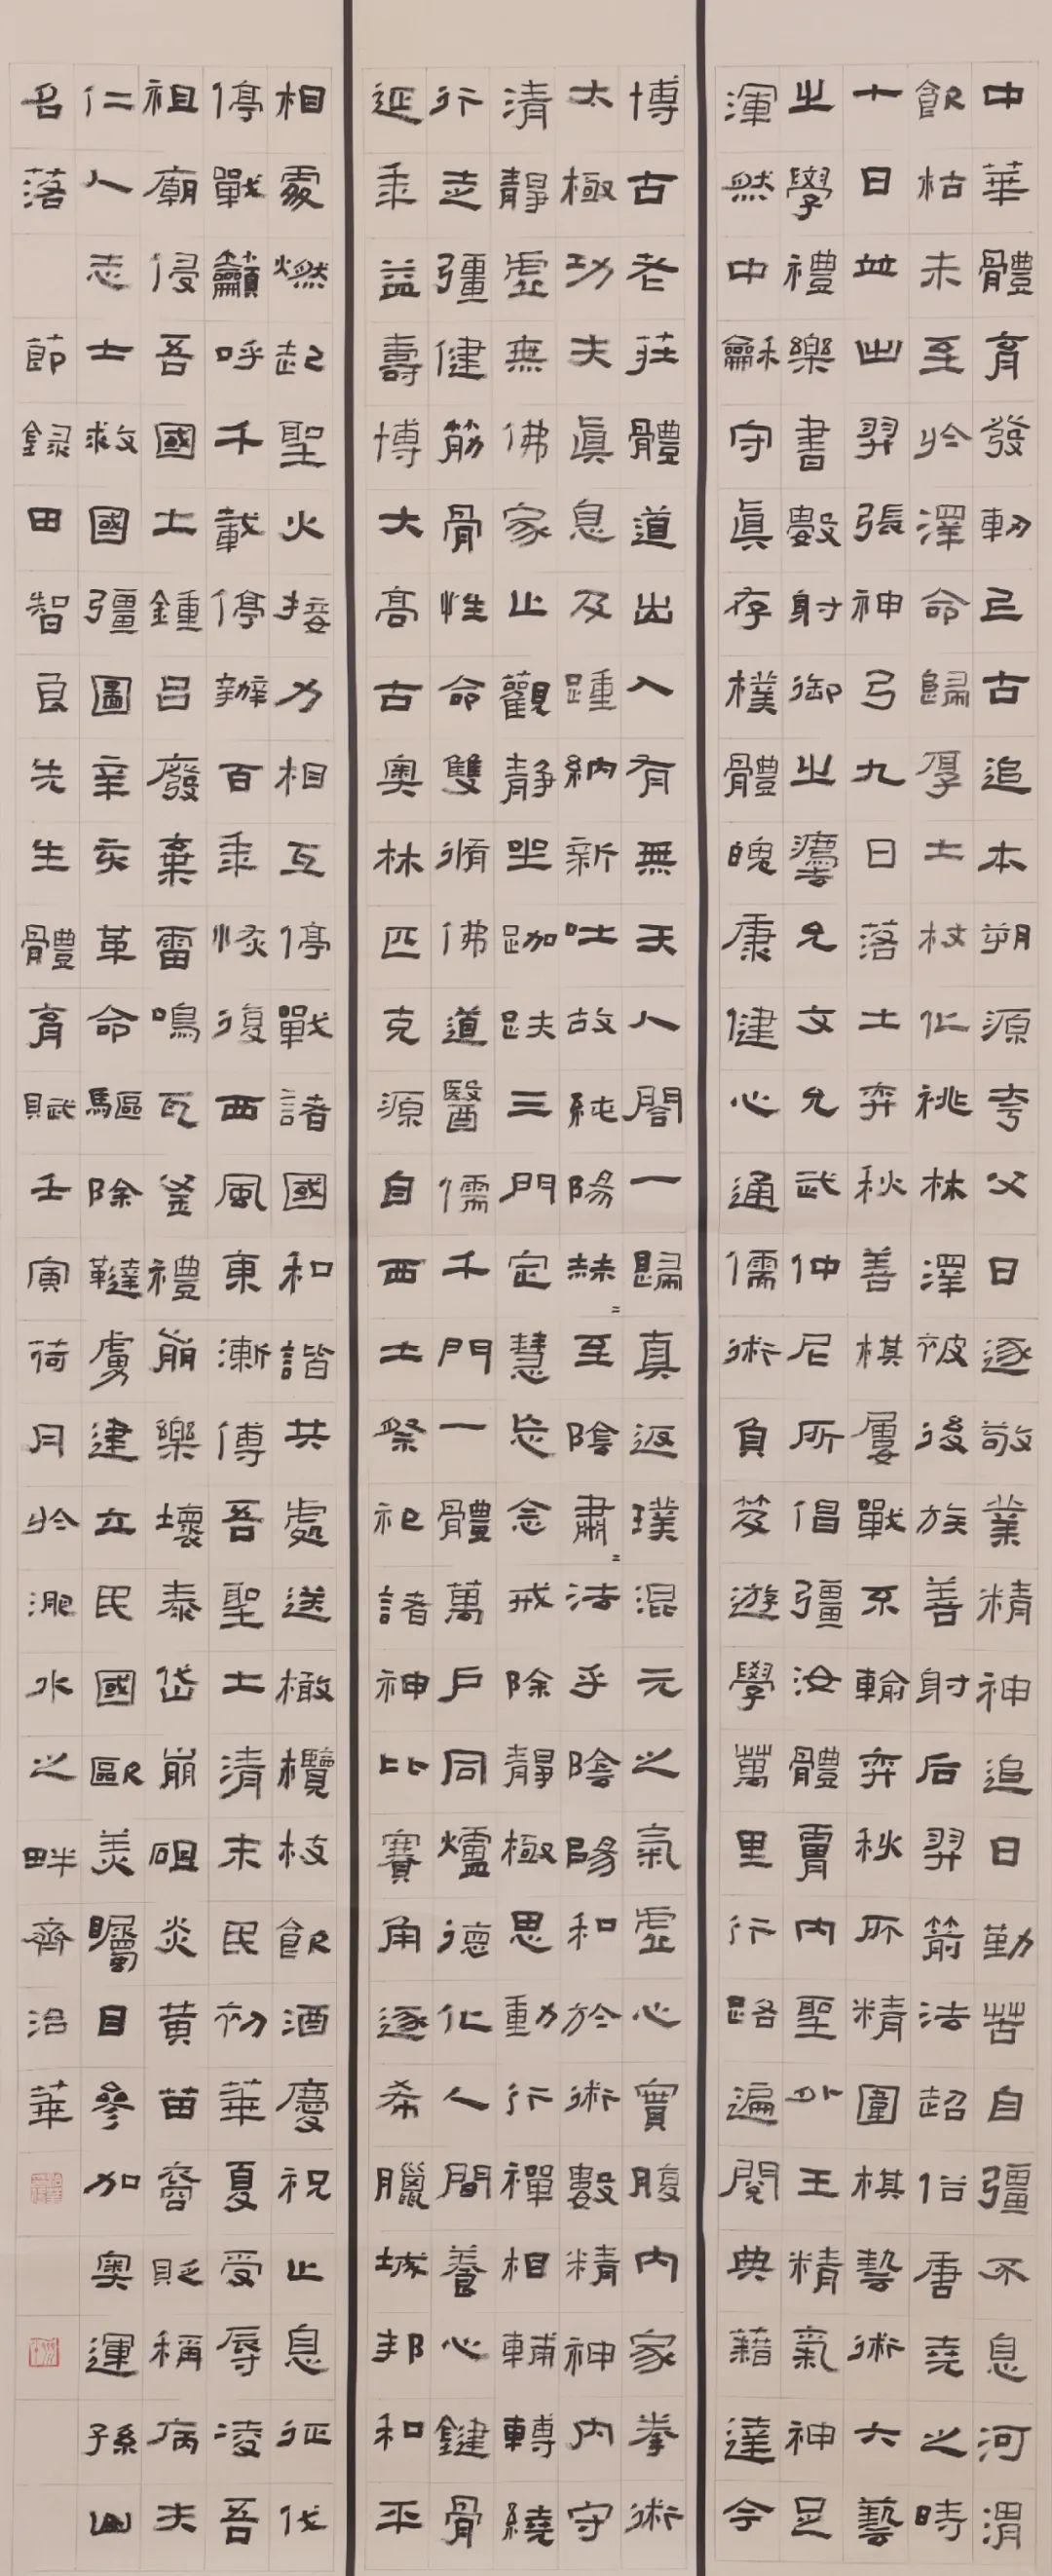 中華體育發軔已古追本朔源夸父日逐敬業精神追日勤苦自彊不息河渭
飲枯未至於澤命歸厚土杖化桃林澤被後族善射后羿箭法超俗唐堯之時
十日並出羿張神弓九日落土弈秋善棋屢戰不輸弈秋所精圍棋藝術六藝
之學禮樂書數射御之藝允文允武仲尼所倡彊汝體胃內聖外王精氣神足
渾然中龢守真存樸體魄康健心通儒術負笈遊學萬里行路遍閱典籍達今
博古老莊體道出入有無天人閤一歸真返璞混元之氣虛心實腹內家拳術
太極功夫真息及踵納新吐故純陽赫=至陰肅=法乎陰陽和於術數精神內守
清靜虛無佛家止觀靜坐跏趺三門定慧忘念戒除靜極思動行禪相輔轉繞
行走彊健筋骨性命雙脩佛道醫儒千門一體萬戶同爐德化人間養心鍵骨
延年益壽博大高古奧林匹克源自西土祭祀諸神比賽角逐希臘城邦和平
相處燃起聖火接力相互停戰諸國和諧共處送橄欖枝飲酒慶祝止息征伐
停戰籲呼千載停辦百年恢復西風東漸傅吾聖土清末民初華夏受辱凌吾
祖廟侵吾國土鍾呂廢棄雷鳴瓦釜禮崩樂壞泰岱崩砠炎黃苗裔貶稱病夫
仁人志士救國彊圖辛亥革命驅除韃虜建立民國歐美矚目參加奧運孫山
名落 節錄田智良先生體育賦壬寅荷月於淝水之畔齊治華